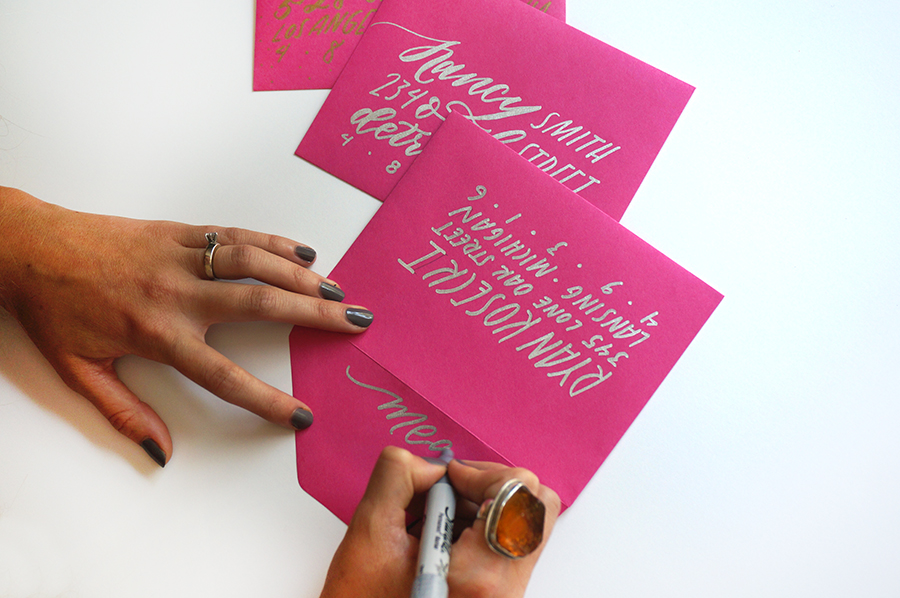 LOS ANGE
Nancy SMITH
234 STREET
detr
4 . 8
RYAN KOSECKI
345 LONE OAK STREET
LANSING . MICHIGAN
4 . 9 . 3 . 1 . 6
Sharpie